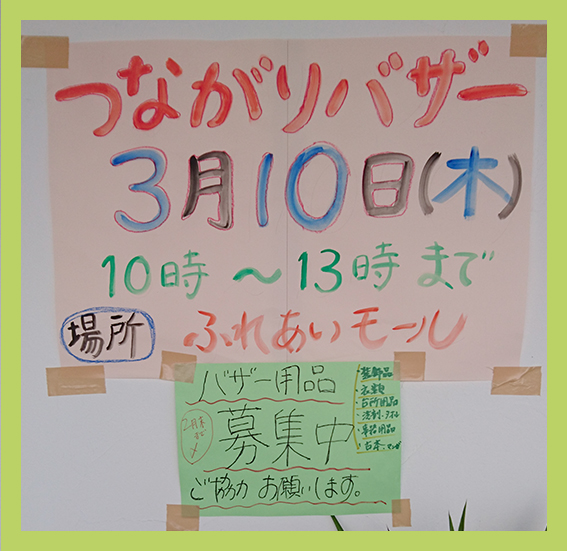 つながりバザー
3月10日(木)
10時〜13時まで
場所 ふれあいモール
バザー用品
募集中
2月末
まで
ご協力お願いします。
・装飾品
・衣類
・台所用品
・洗剤
・事務用品
・古本・マンガ